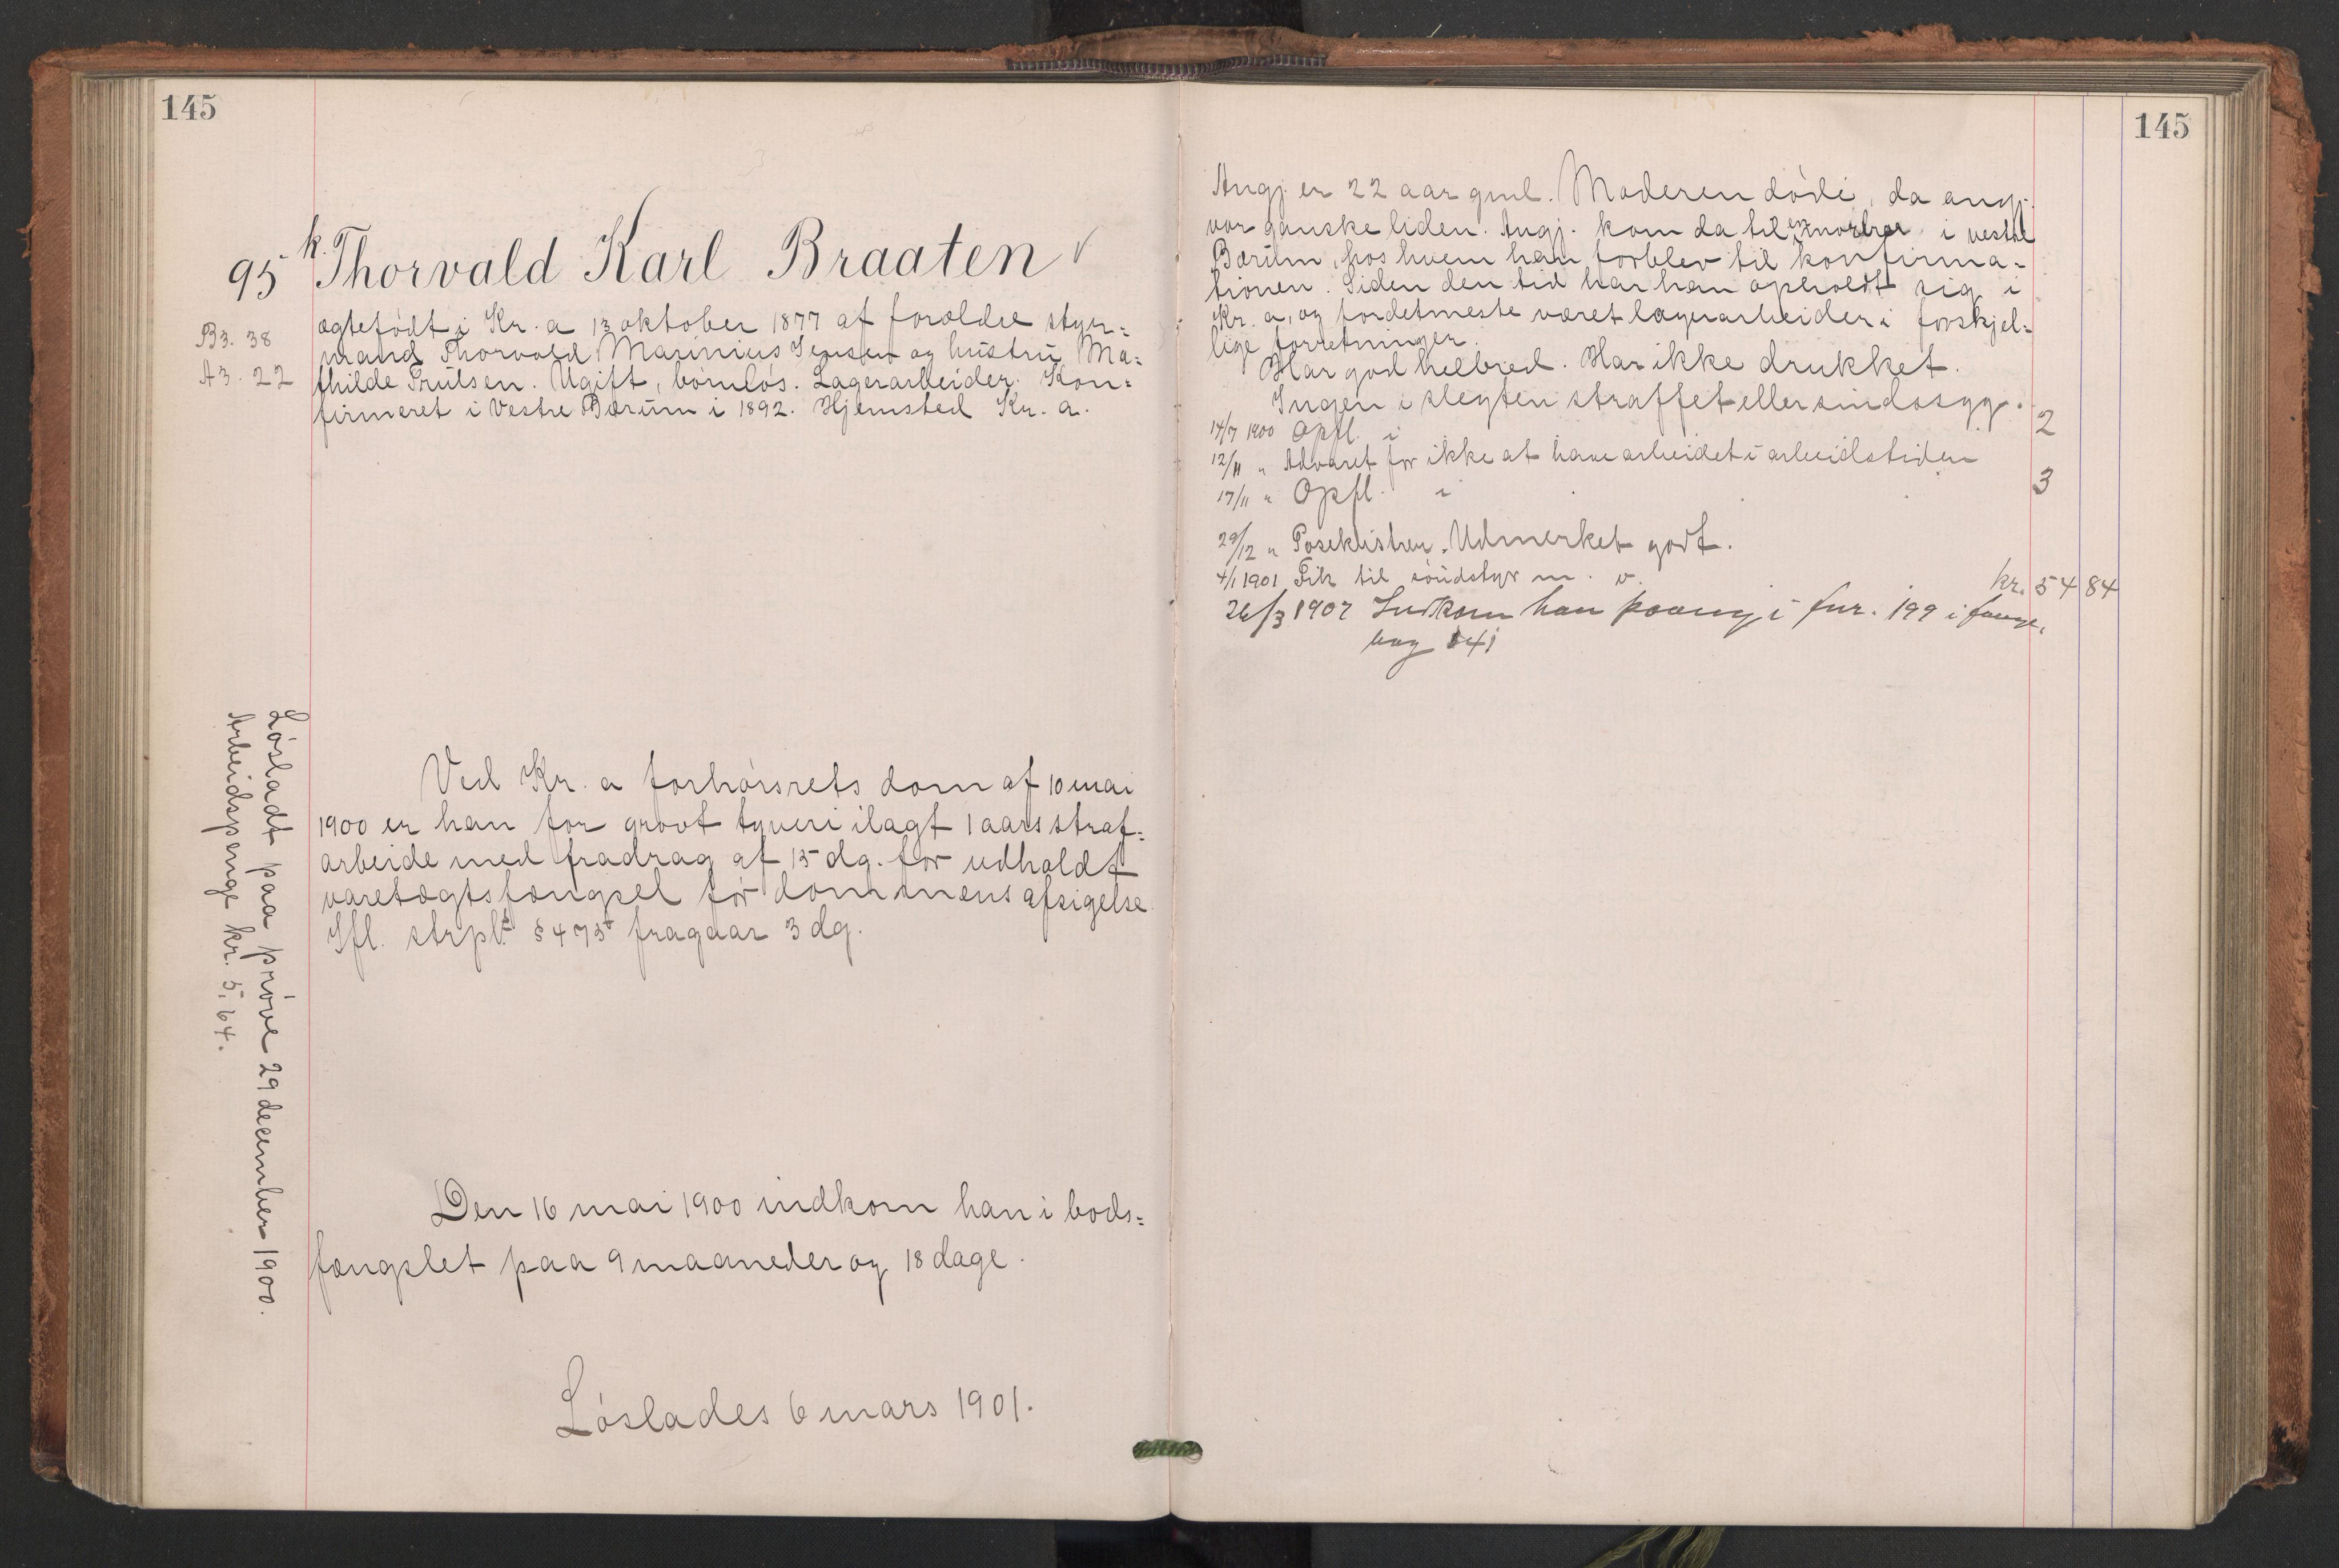 145
k.
95 Thorvald Karl Braaten ✓
B3. 38
A3. 22
ægtefødt i Kr.a 13 oktober 1877 af forældre styr=
mand Thorvald Marinius Jensen og hustru Ma=
thilde Trulsen. Ugift, børnløs. Lagerarbeider. Kon=
firmeret i Vestre Bærum i 1892. Hjemsted Kr.a.
Ved Kr.a forhørsrets dom af 10 mai
1900 er han for grovt tyveri ilagt 1 aars straf=
arbeide med fradrag af 15 dg. for udholdt
varetægtsfængsel før dommens afsigelse.
Ifl. strpl. § 475 fragaar 3 dg.
Løsladt paa prøve 29 december 1900.
Arbeidspenge kr. 5,64.
Den 16 mai 1900 indkom han i bods=
fængslet paa 9 maaneder og 18 dage.
Løslades 6 mars 1901.
145
Angj. er 22 aar gml. Moderen døde, da angj.
var ganske liden. Angj. kom da til en morbror i vestre
Bærum, hos hvem han forblev til konfirma=
tionen. Siden den tid har han opholdt sig i
Kr.a, og fordetmeste været lagerarbeider i forskjel=
lige forretninger.
Har god helbred. Har ikke drukket.
Ingen i slegten straffet eller sindssyg.
14/7 1900 Opfl. i 2
12/11 " Advaret for ikke at have arbeidet i arbeidstiden
17/11 " Opfl. i 3
29/12 " Poseklistrer. Udmerket godt.
4/1 1901 Fik til søudstyr m. v. kr. 54 84
26/3 1907 Indkom han paany i fnr. 199 i fange.
bog 141